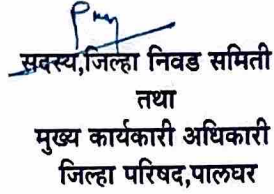 सदस्य,जिल्हा निवड समिती
तथा
मुख्य कार्यकारी अधिकारी
जिल्हा परिषद,पालघर